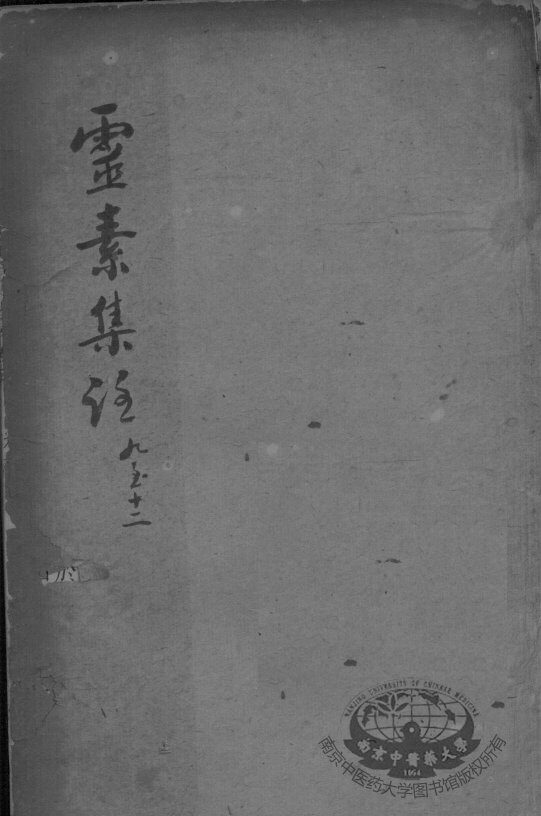 靈素集註
九至十二
NANJING UNIVERSITY OF CHINESE MEDICINE
南京中醫藥大學
1954
南京中医药大学图书馆版权所有